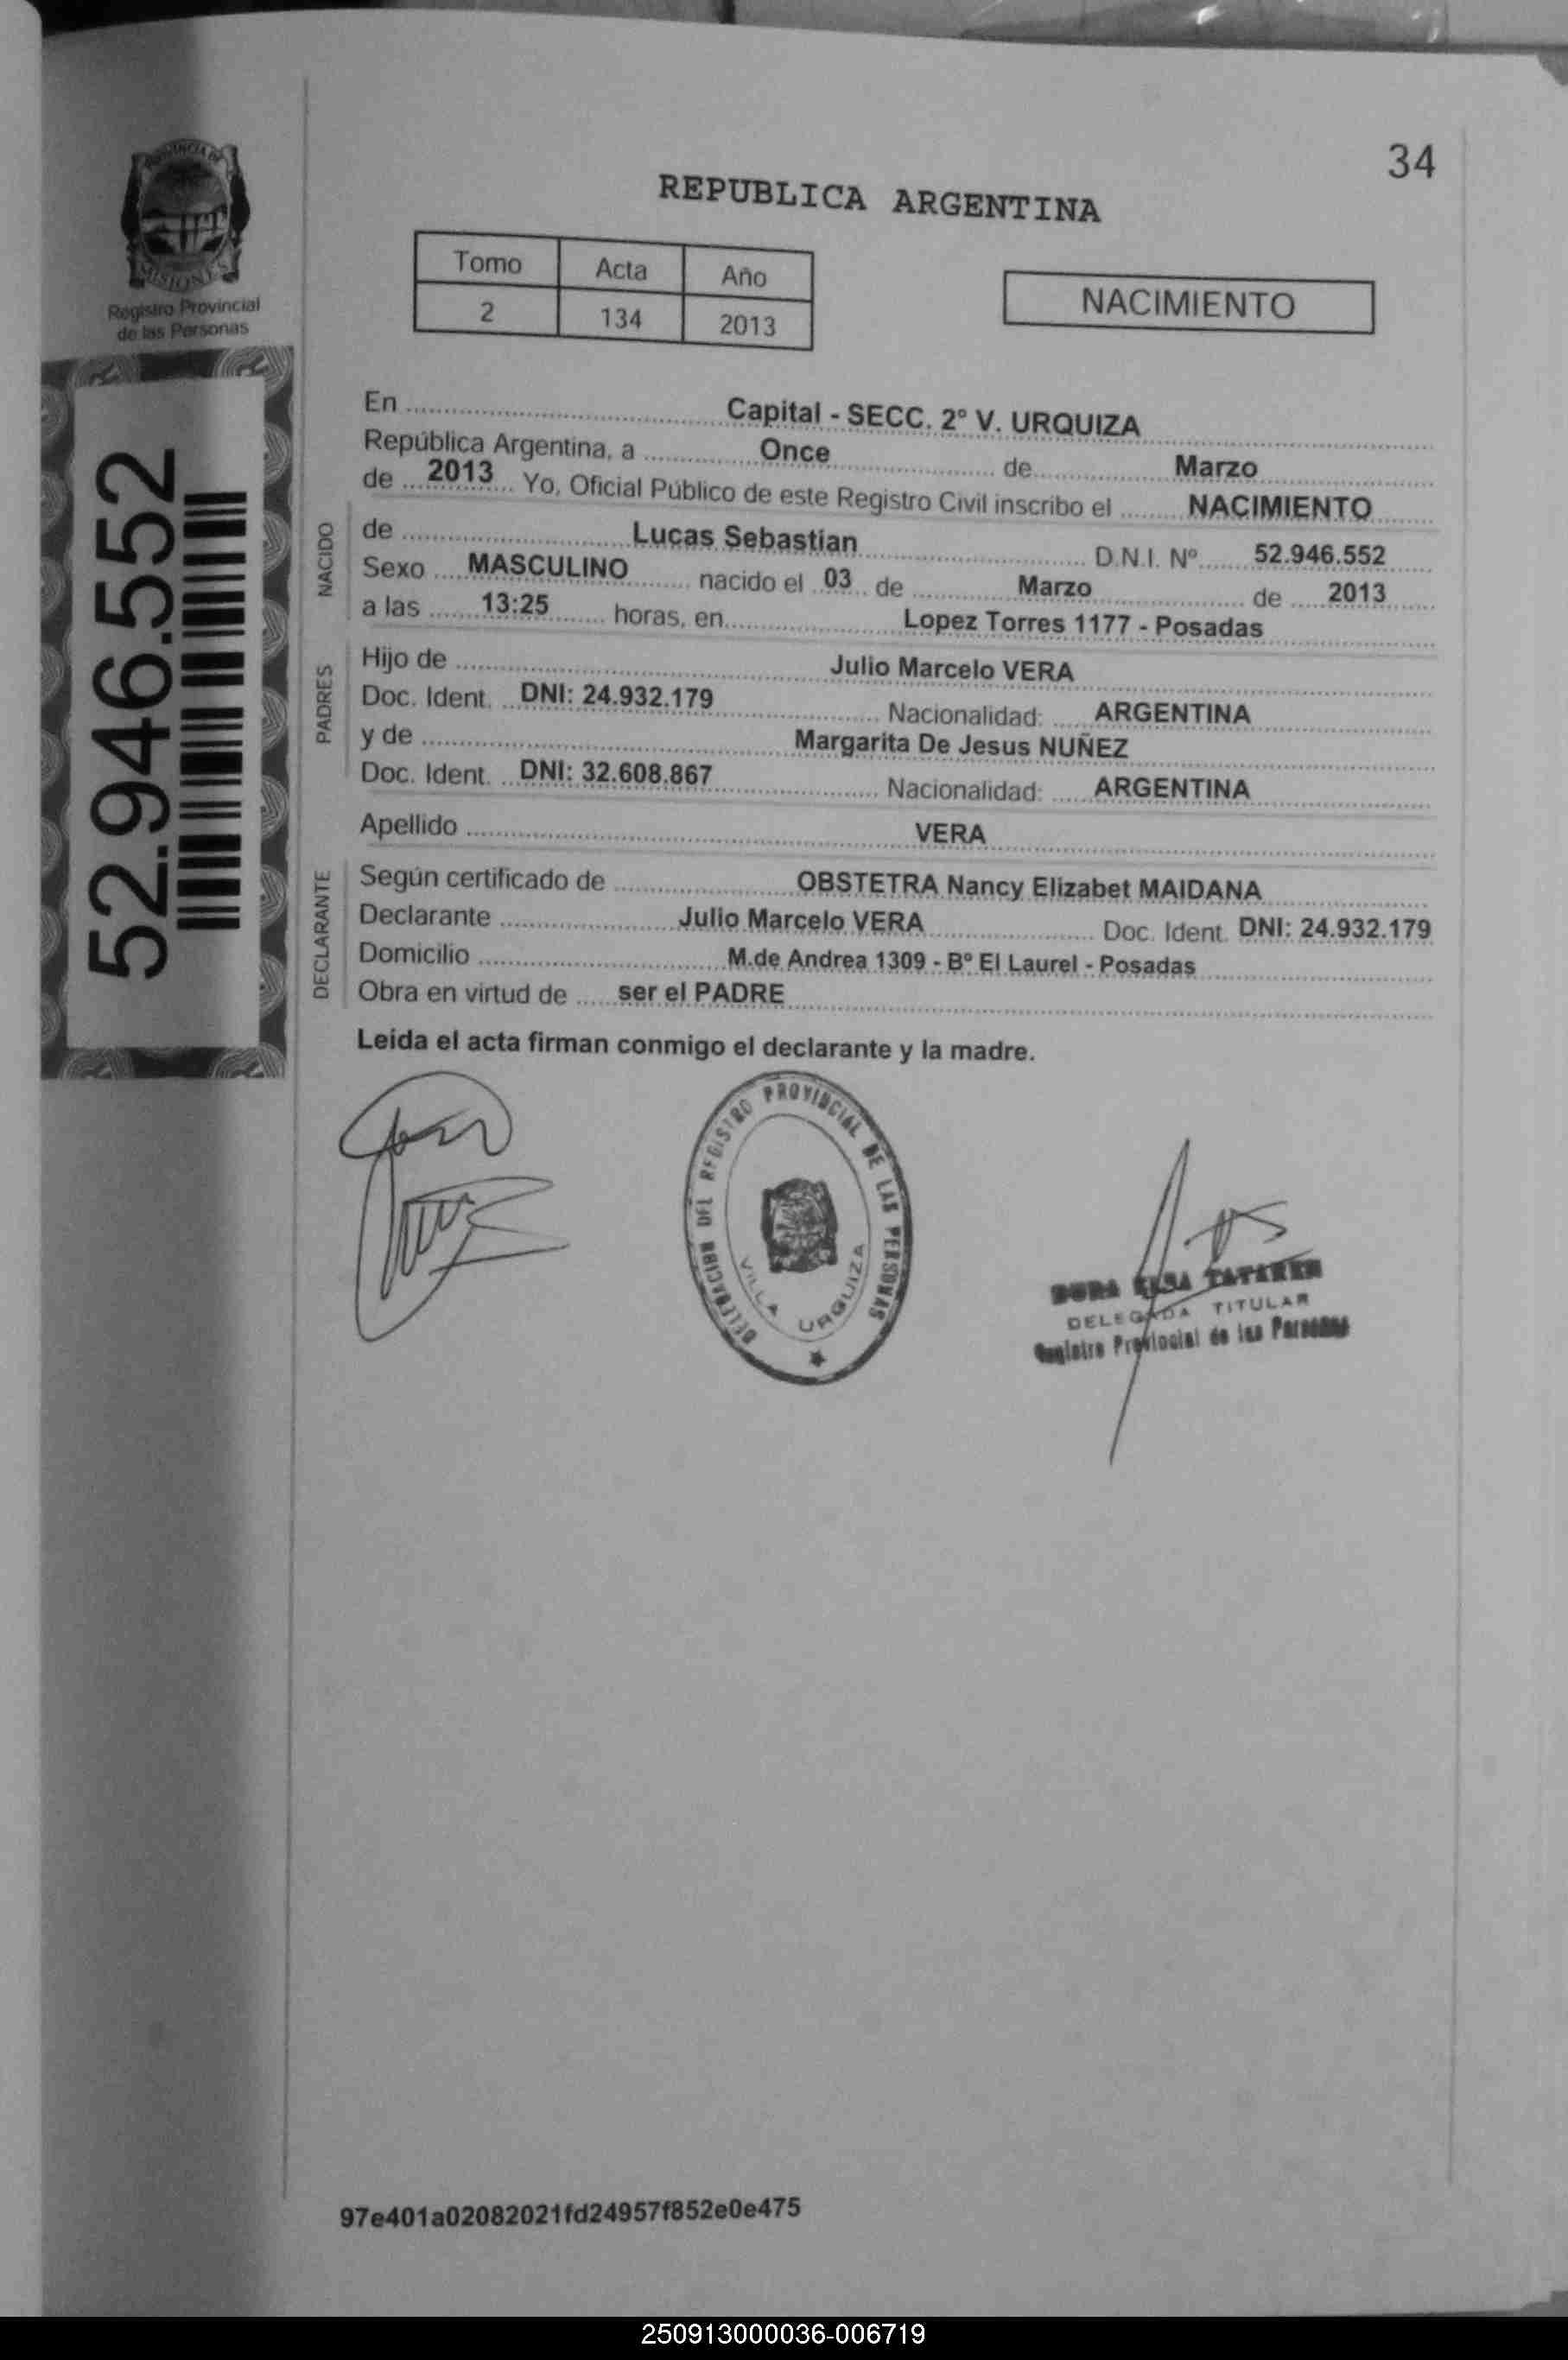 34
PROVINCIA DE
MISIONES
Registro Provincial
de las Personas
52.946.552
REPUBLICA ARGENTINA
Tomo Acta Año
2 134 2013
NACIMIENTO
En Capital - SECC. 2º V. URQUIZA
República Argentina, a Once de Marzo
de 2013 Yo, Oficial Público de este Registro Civil inscribo el NACIMIENTO
NACIDO
de Lucas Sebastian D.N.I. Nº 52.946.552
Sexo MASCULINO nacido el 03 de Marzo de 2013
a las 13:25 horas, en Lopez Torres 1177 - Posadas
PADRES
Hijo de Julio Marcelo VERA
Doc. Ident. DNI: 24.932.179 Nacionalidad: ARGENTINA
y de Margarita De Jesus NUÑEZ
Doc. Ident. DNI: 32.608.867 Nacionalidad: ARGENTINA
Apellido VERA
DECLARANTE
Según certificado de OBSTETRA Nancy Elizabet MAIDANA
Declarante Julio Marcelo VERA Doc. Ident. DNI: 24.932.179
Domicilio M.de Andrea 1309 - Bº El Laurel - Posadas
Obra en virtud de ser el PADRE
Leída el acta firman conmigo el declarante y la madre.
DELEGACION DEL REGISTRO PROVINCIAL DE LAS PERSONAS
VILLA URQUIZA
DELEGADA TITULAR
Registro Provincial de las Personas
97e401a02082021fd24957f852e0e475
250913000036-006719